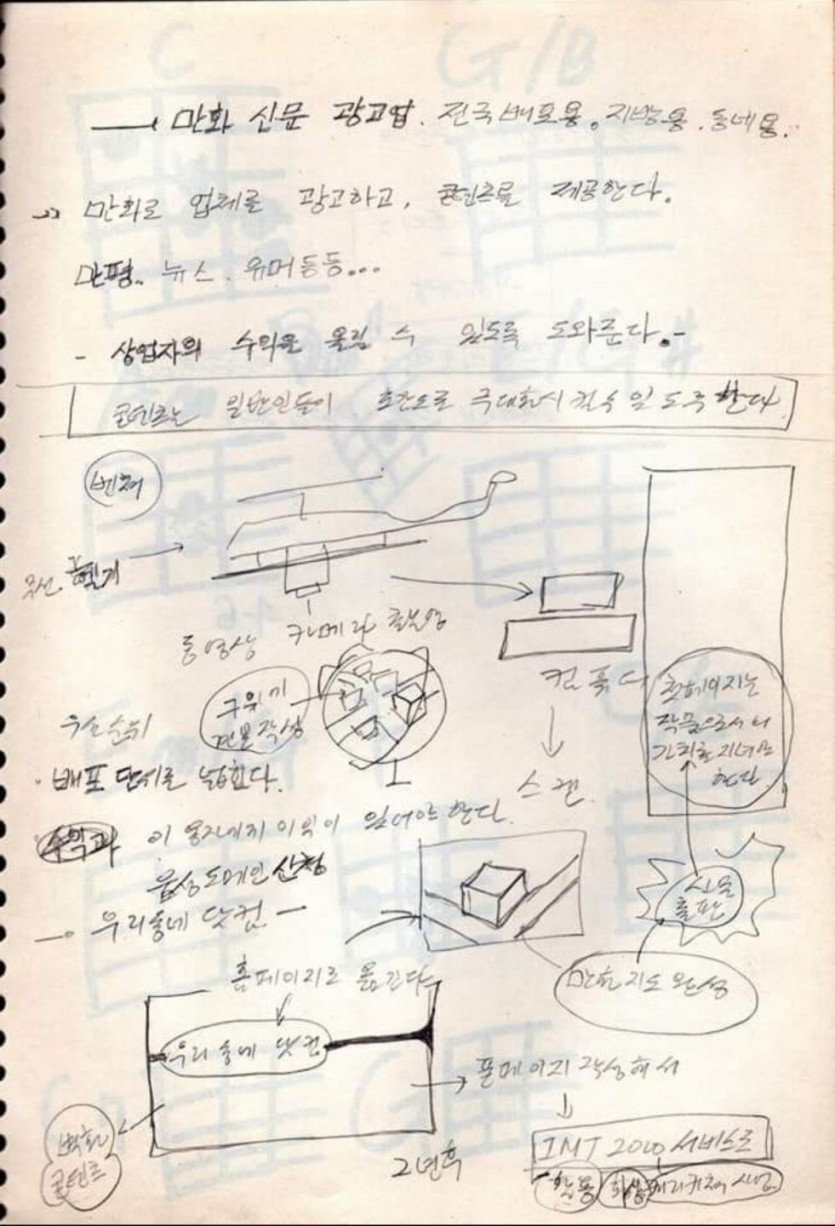 만화 신문 광고업. 전국배포용. 지방용. 동네용.
만화로 업체를 광고하고, 콘텐츠를 제공한다.
만평.. 뉴스. 유머등등...
- 상업자의 수익을 올릴 수 있도록 도와준다. -
콘텐츠는 일반인들이 극대화시킬수 있도록 한다
벤처
무선 헬기
동영상 카메라 촬영
컴퓨터
첫페이지는
작품으로서의
가치를 지녀야
한다
우선순위
· 배포 단계를 넓힌다.
스캔.
이 있어야 한다.
도메인 신청
우리동네 닷컴 -
신문
출판
홈페이지로 옮긴다
만화지도 완성
우리 동네 닷컴
폰페이지 작성해서
만화
콘텐츠
2년후
IMT 2000 서비스로
활용
캐리커쳐 사업